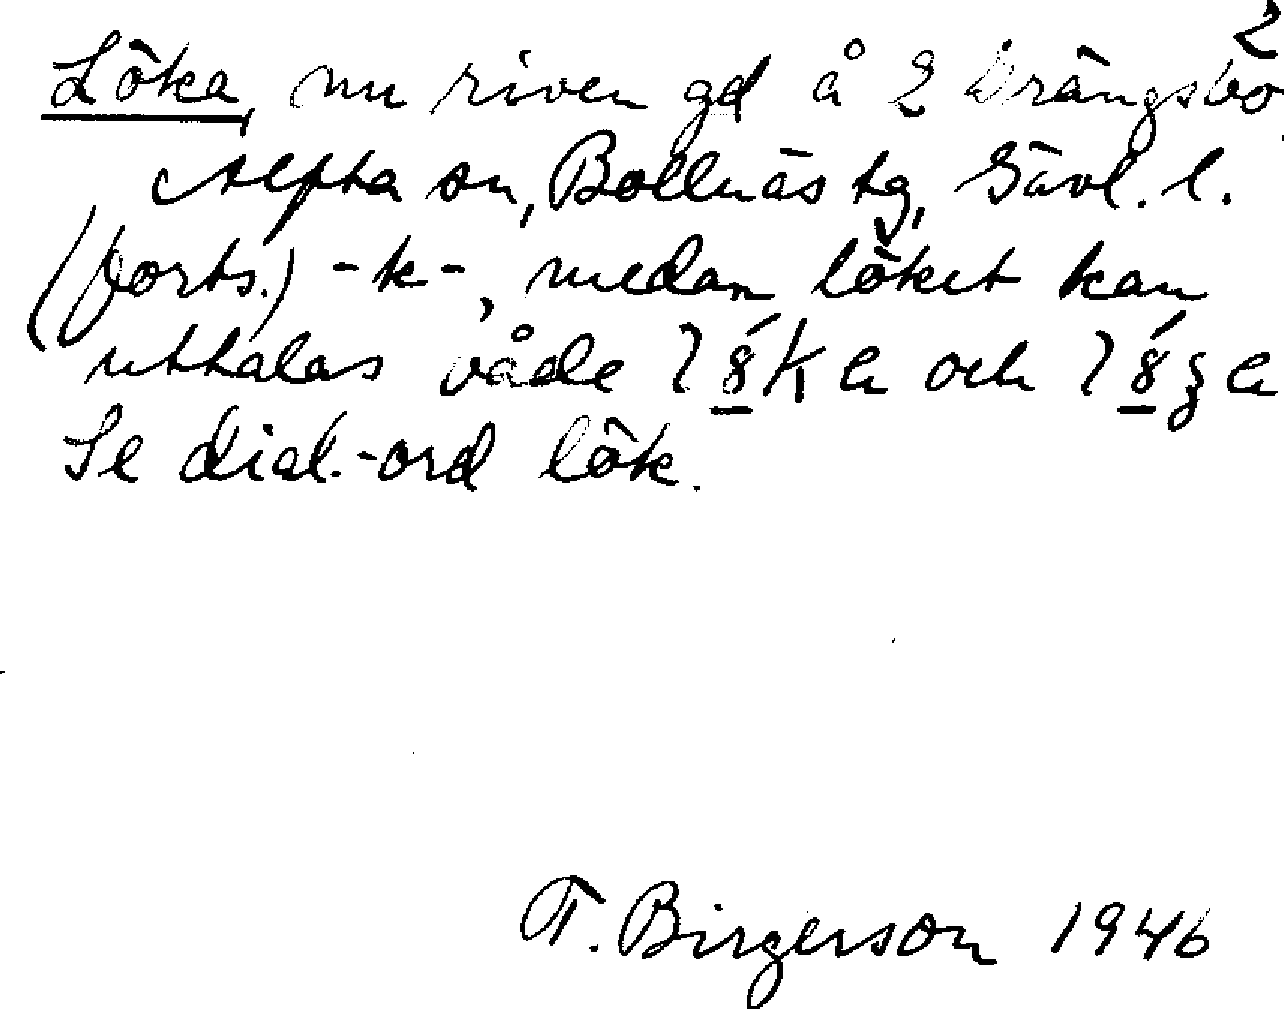 2
Löka, nu riven gd å 2 Drängsbo
Alfta sn, Bollnäs tg, Gävl. l.
(forts.) -k-, medan löket kan
uttalas både och
Se dial.-ord lök.
F. Birgerson 1946